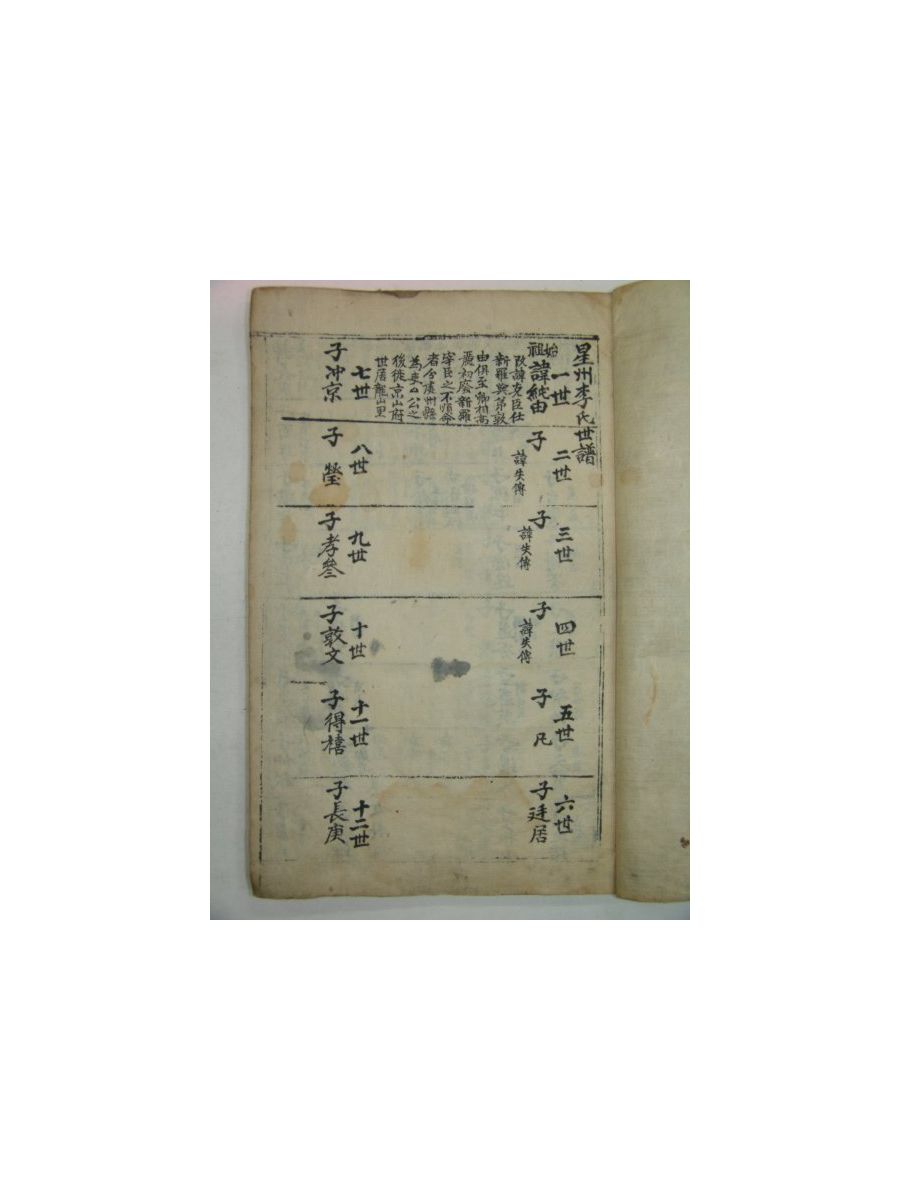 星州李氏世譜
一世
始祖
諱純由
改諱克臣仕
新羅與弟敦
由俱至卿相高
麗初廢新羅
宰臣之不順命
者分隷州縣
為吏公之
後徙京山府
世居龍山里
二世
子
諱失傳
三世
子
諱失傳
四世
子
諱失傳
五世
子
六世
子廷居
七世
子冲京
八世
子 瑩
九世
子孝參
十世
子敦文
十一世
子得禧
十二世
子長庚